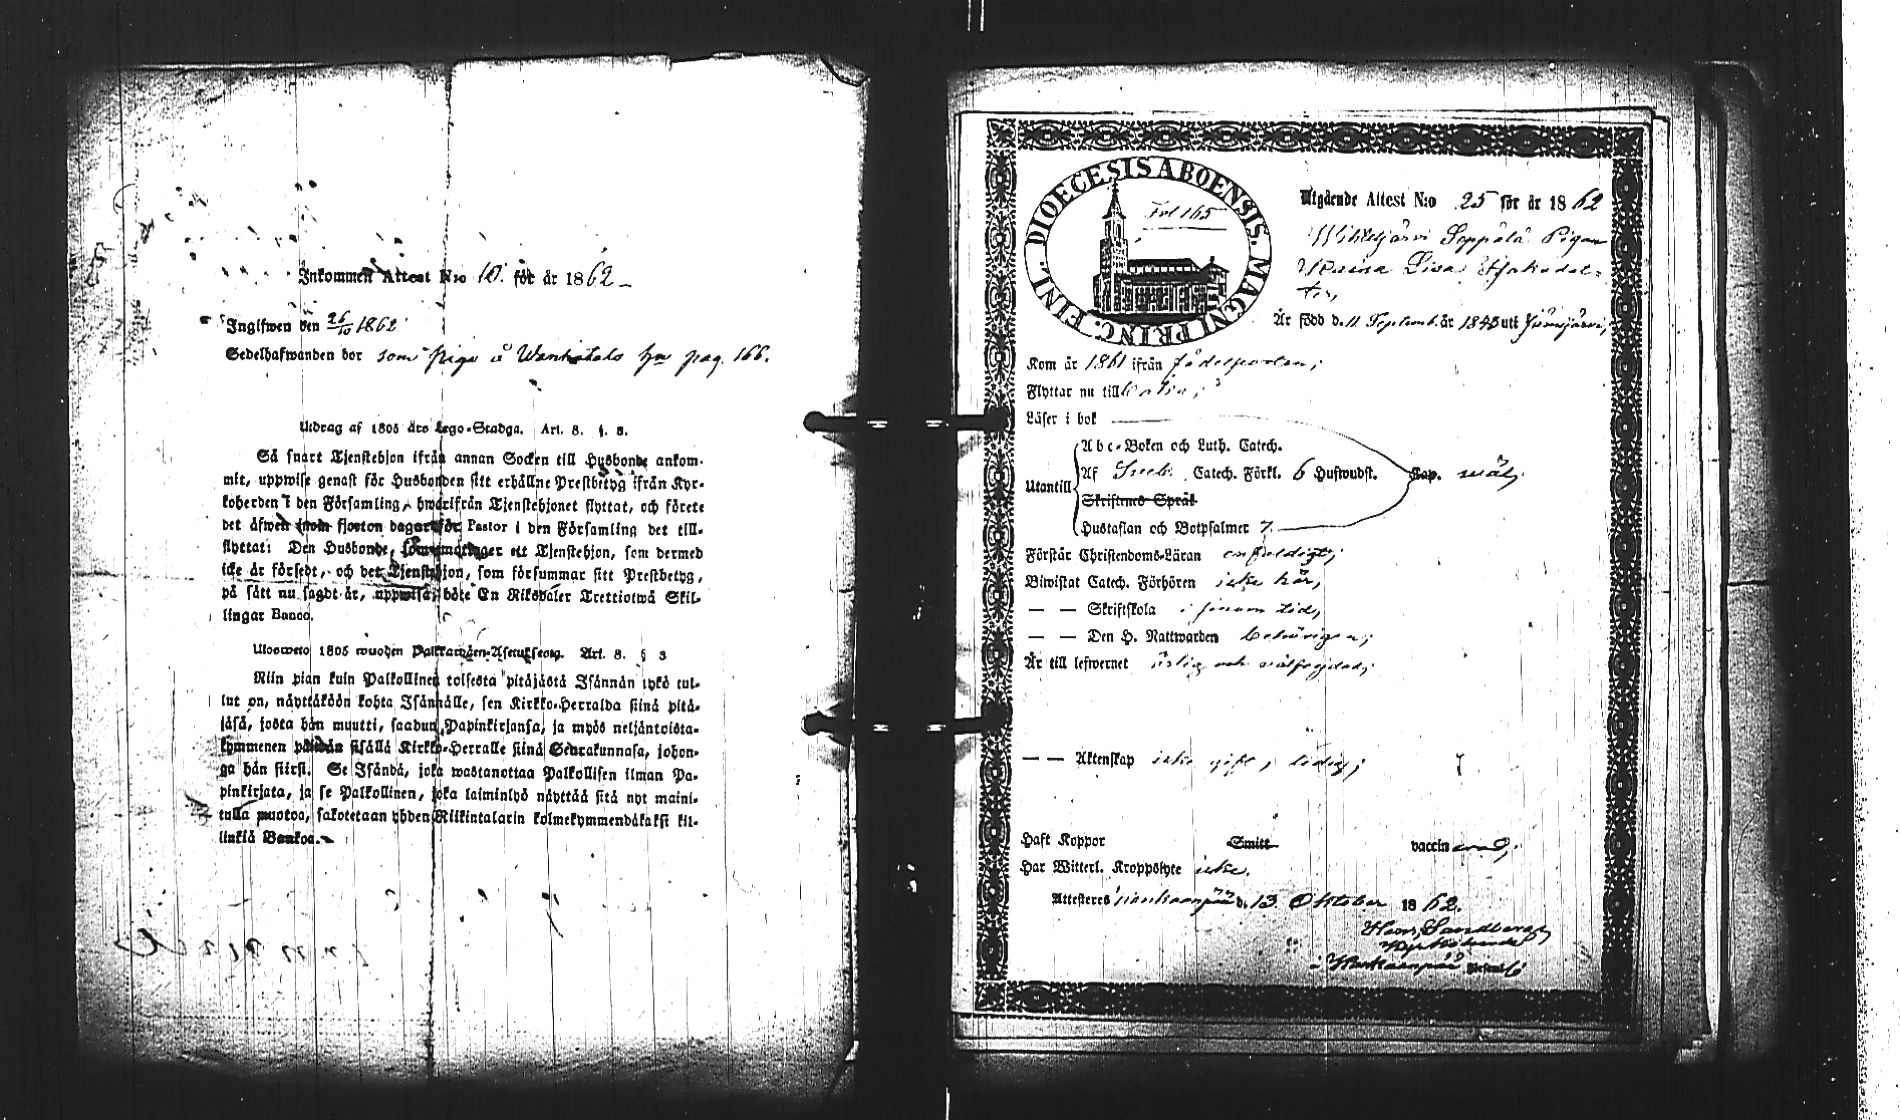 Inkommen Attest N:o 10. för år 1862
Inglfwen den 26/10 1862
Sedelhafwanden bor som piga å Wanhatalo hm pag. 166.
Utdrag af 1805 års Lego-Stadga. Art. 8. §. 3.
Så snart Tjenstehjon ifrån annan Socken till Husbonde ankom-
mit, uppwise genast för Husbonden sitt erhållne Prestbetyg ifrån Kyr-
koherden i den Församling, hwarifrån Tjenstehjonet flyttat, och förete
det äfwen inom fjorton dagar för Pastor i den Församling det till-
flyttat: Den Husbonde, som emottager ett Tjenstehjon, som dermed
icke är försedt, och det Tjenstehjon, som försummar sitt Prestbetyg,
på sätt nu sagdt är, uppwisa, böte En Riksdaler Trettiotwå Skil-
lingar Banco.
Ulosweto 1805 wuoden Palkkawäen-Asetuksesta. Art. 8. § 3
Niin pian kuin Palkollinen toisesta pitäjästä Isännän tykö tul-
lut on, näyttäköön kohta Isännälle, sen Kirkko-Herralda siinä pitä-
jäsä, josta hän muutti, saadun Papinkirjansa, ja myös neljäntoista-
kymmenen päiwän sisällä Kirkko-Herralle siinä Seurakunnasa, johon-
ga hän siirsi. Se Isändä, joka wastanottaa Palkollisen ilman Pa-
pinkirjata, ja se Palkollinen, joka laiminlyö näyttää sitä nyt maini-
tulla muotoa, sakotetaan yhden Riikintalarin kolmekymmendäkaksi kil-
linkiä Bankoa.
DIOECESIS ABOENSIS. MAGNI PRINC. FINL.
Fol 165
Utgående Attest N:o 25 för år 1862
Wihteljärvi Seppälä Pigan
Maria Lisa
ter,
Är född d. 11 Septemb. år 1845 uti Jämijärvi,
Kom år 1861 ifrån födelseorten;
Flyttar nu till
Läser i bok
Abc-Boken och Luth. Catech.
Utantill Af Sueb. Catech. Förkl. 6 Hufwudst. Cap. wäl;
Skriftenes Språk
Hustaflan och Botpsalmer 7.
Förstår Christendoms-Läran enfaldigt;
Biwistat Catech. Förhören icke här,
— — Skriftskola i sinom tid,
— — Den H. Nattwarden behörigen;
Är till lefwernet ärlig och wälfrejdad;
— — Äktenskap icke gift, ledig;
Haft Koppor Smitt vaccinerad;
Har Witterl. Kroppslyte icke.
Attesteras Kankaanpää d. 13 Oktober 1862.
Henr. Sandberg
Kyrkoherde
i Kankaanpää